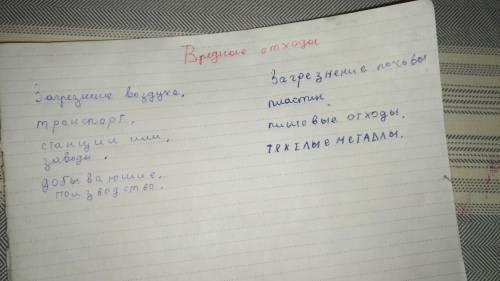 Вредные отходы
Загрезнение воздуха.
транспорт.
станции или
заводы.
добывающие.
производство.
Загрезнение почьвы
пластик.
пищевые отходы.
тяжелые металлы.